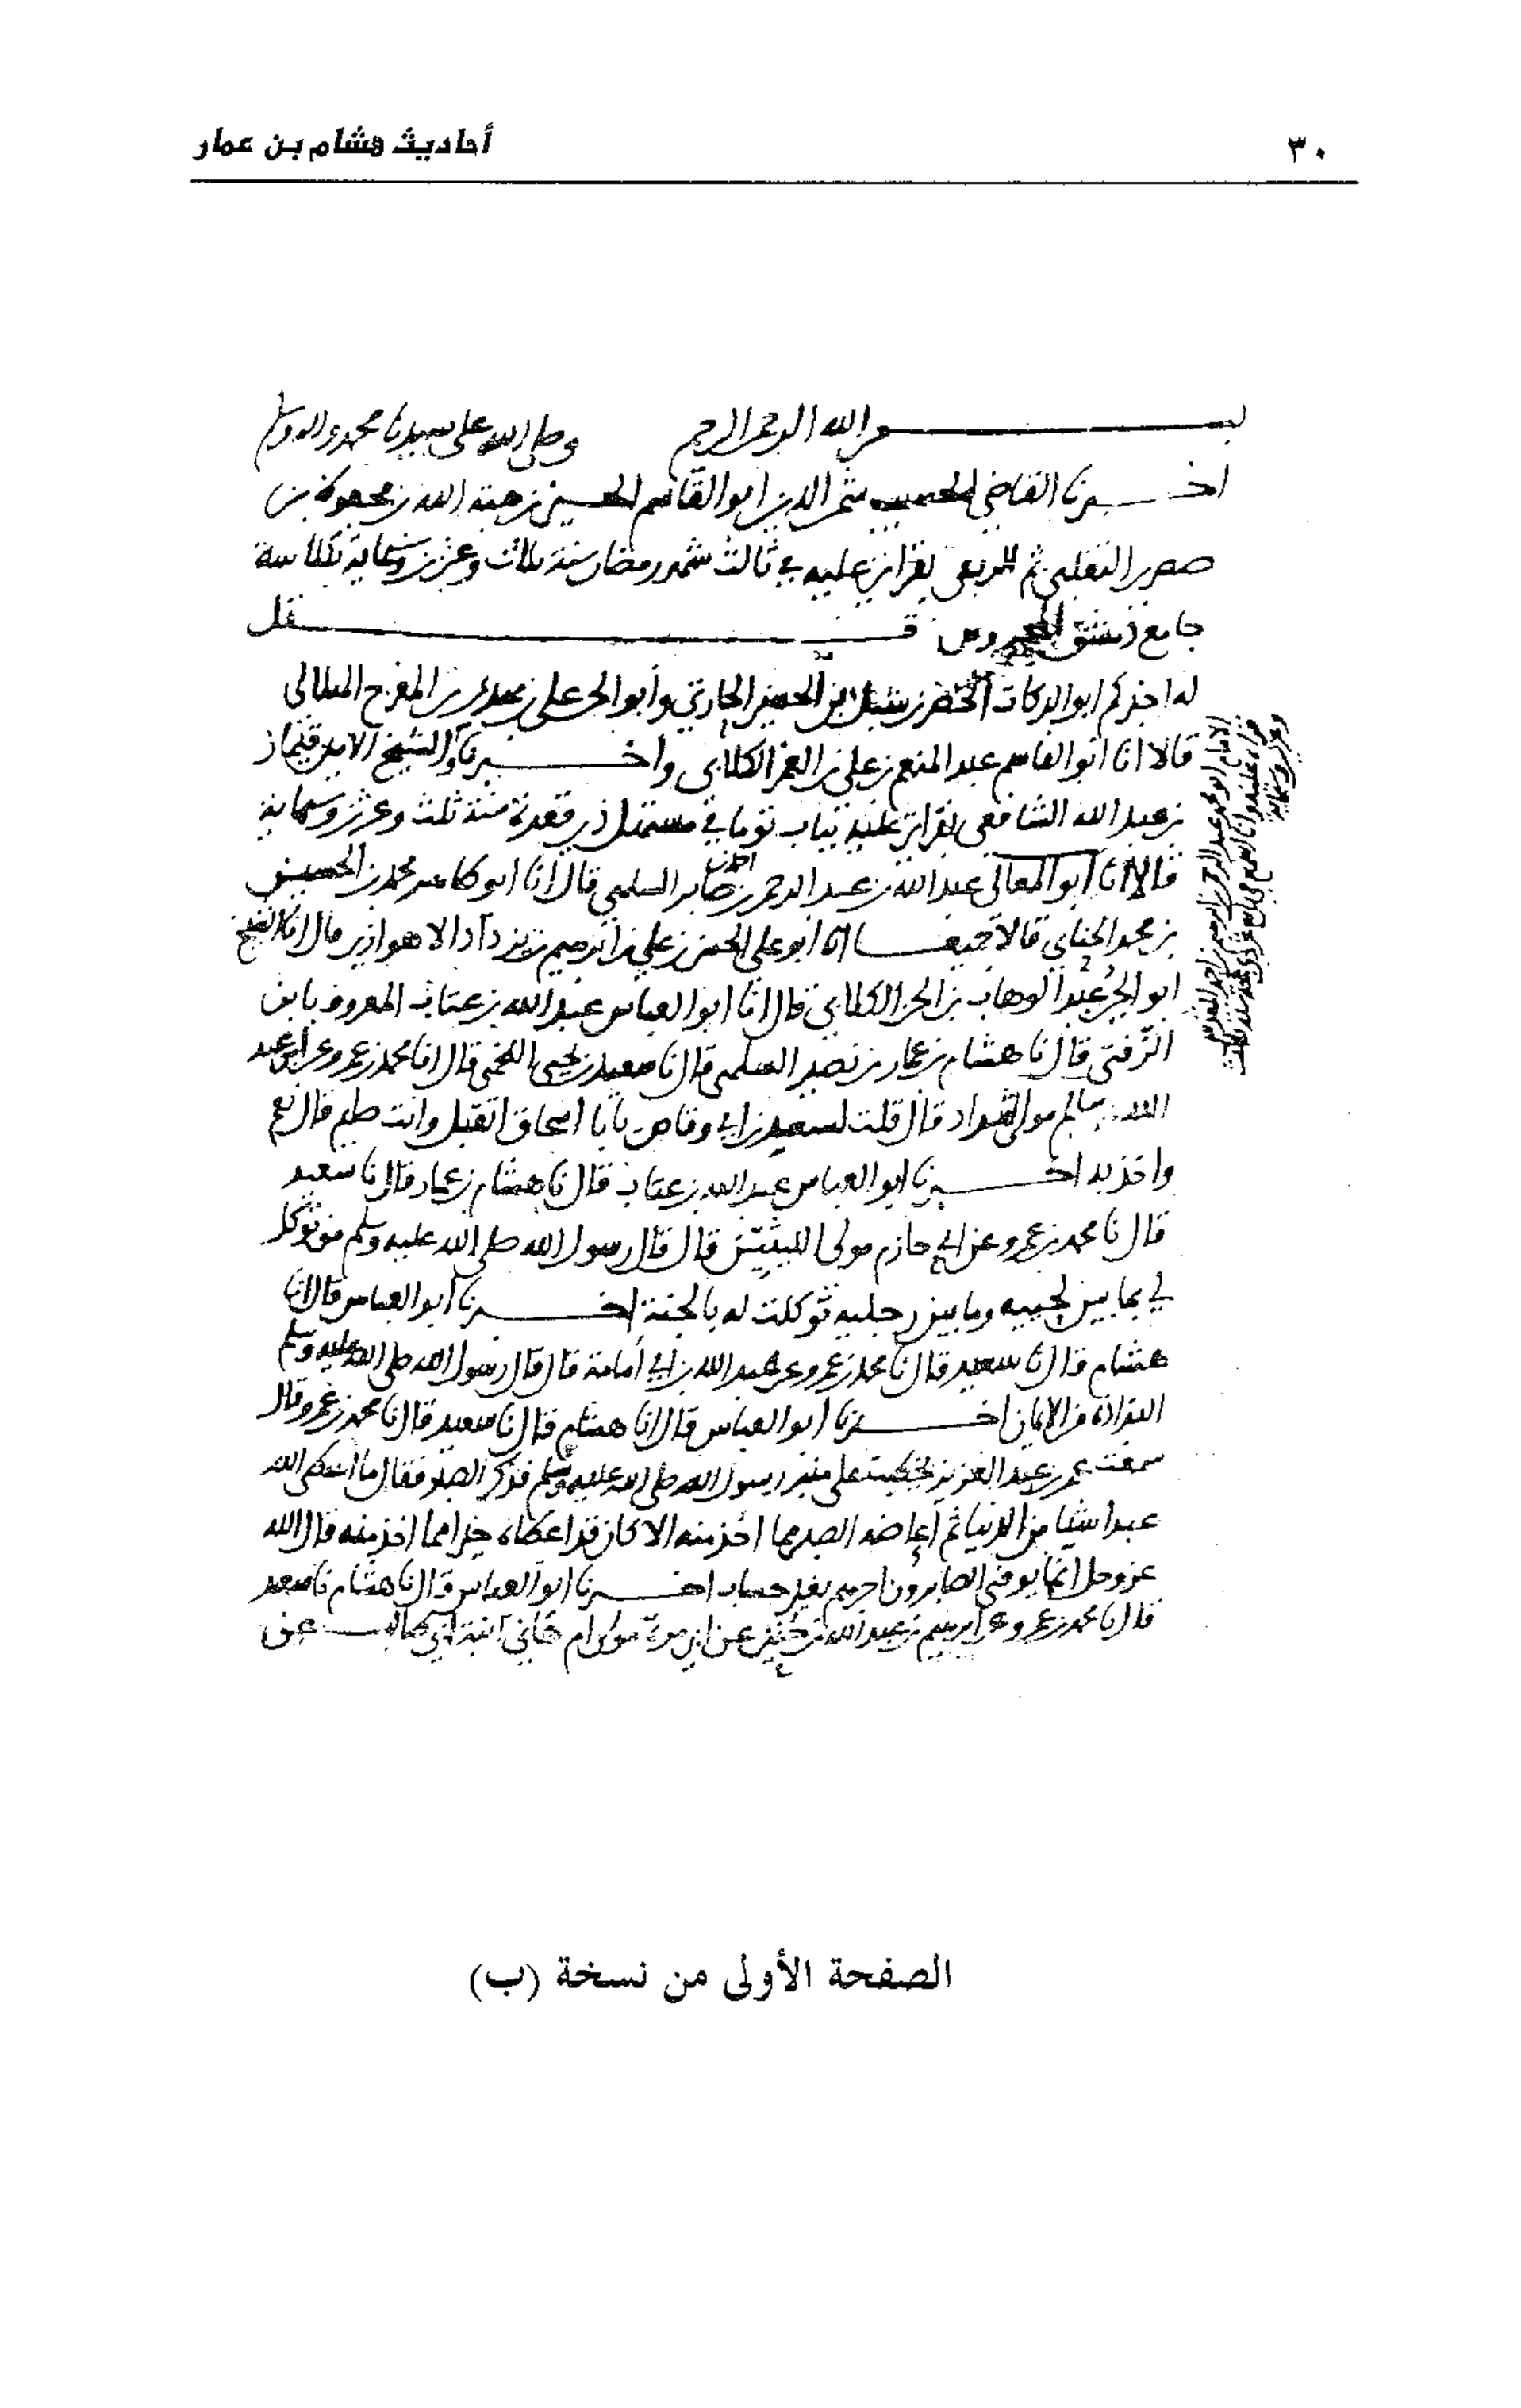 ٣٠
أحاديث هشام بن عمار
بسم الله الرحمن الرحيم وصلى الله على سيدنا محمد واله وسلم
اخبرنا القاضي الحسيب شمس الدين ابو القاسم الحسين بن هبة الله بن محفوظ بن
صصرى التغلبي ثم الربعي بقراتي عليه في ثالث شهر رمضان سنة ثلاث وعشرين وستماية بكلاسة
جامع دمشق المحروس قيل
له اخبركم ابو البركات الخضر بن شبل بن الحسين الحارثي وأبو الحسن علي بن
قالا انا ابو القاسم عبد المنعم بن علي بن الغمر الكلابي واخبرنا الشيخ الامين قيماز
بن عبد الله الشافعي بقراتي عليه بباب توما في مستهل ذي قعدة سنة ثلث وعشرين وستماية
قال انا ابو المعالي عبد الله بن عبد الرحمن بن احمد بن صابر السلمي قال انا ابو طاهر محمد بن الحسين
بن محمد الحنائي قالا جميعا انا ابو علي الحسن بن علي بن ابرهيم بن يزداد الاهوازي قال انا الشيخ
ابو الحسين عبد الوهاب بن الحسن الكلابي قال انا ابو العباس عبد الله بن عتاب المعروف بابن
الزفتي قال نا هشام بن عمار بن نصير السلمي قال نا سعيد بن يحيى اللخمي قال انا محمد بن عمرو عن أبي عبد
الله سالم مولى شداد قال قلت لسعد بن ابي وقاص يا با اسحاق اتقبل وانت صايم قال نعم
واخذ بيد اخبرنا ابو العباس عبد الله بن عتاب قال نا هشام بن عمار قال نا سعيد
قال نا محمد بن عمرو عن ابي حازم مولى الليثيين قال قال رسول الله صلى الله عليه وسلم من توكل
لي بما بين لحييه وما بين رجليه توكلت له بالجنة اخبرنا أبو العباس قال انا
هشام قال نا سعيد قال نا محمد بن عمرو عن عبد الله بن ابي أمامة قال قال رسول الله صلى الله عليه وسلم
البذاذة من الايمان اخبرنا ابو العباس قال انا هشام قال نا سعيد قال نا محمد بن عمرو قال
سمعت عمر بن عبد العزيز يخطب على منبر رسول الله صلى الله عليه وسلم فذكر الصبر فقال ما اعطى الله
عبدا شيا من الدنيا ثم أعاضه الصبر مما اخذ منه الا كان قد اعطاه خيرا مما اخذ منه قال الله
عز وجل انما يوفى الصابرون اجرهم بغير حساب اخبرنا ابو العباس قال نا هشام نا سعيد
قال نا محمد بن عمرو عن ابرهيم بن عبد الله بن حنين عن ابي مرة مولى ام هاني ابنة ابي طالب عن
الصفحة الأولى من نسخة (ب)